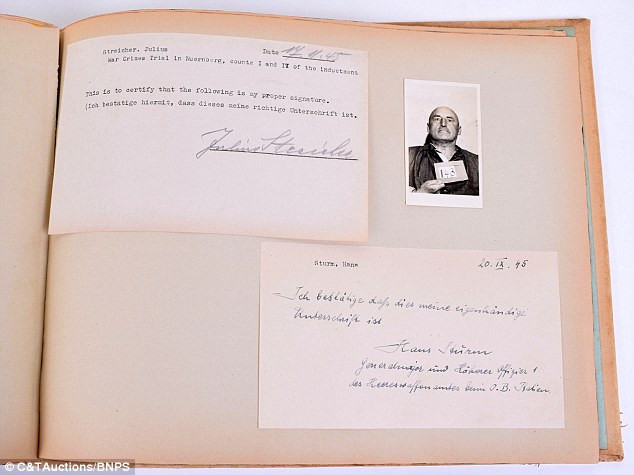 Streicher, Julius Date 17.11.45
War Crimes Trial in Nuernberg, counts I and IV of the indictment
This is to certify that the following is my proper signature.
(Ich bestätige hiermit, dass dieses meine richtige Unterschrift ist.
Julius Streicher
143
Sturm, Hans 20.IX.45
Ich bestätige daß dies meine eigenhändige
Unterschrift ist
Hans Sturm
Generalmajor und Höherer Offizier
des Heereswaffenamtes beim O.B. Italien.
© C&TAuctions/BNPS